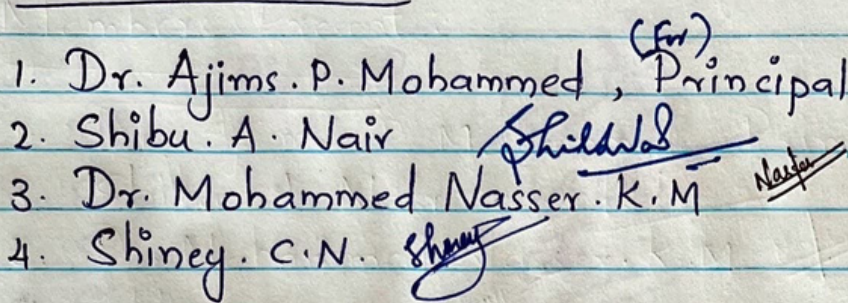 (For)
1. Dr. Ajims. P. Mohammed, Principal
2. Shibu. A. Nair
3. Dr. Mohammed Nasser. K. M
4. Shiney. C. N.